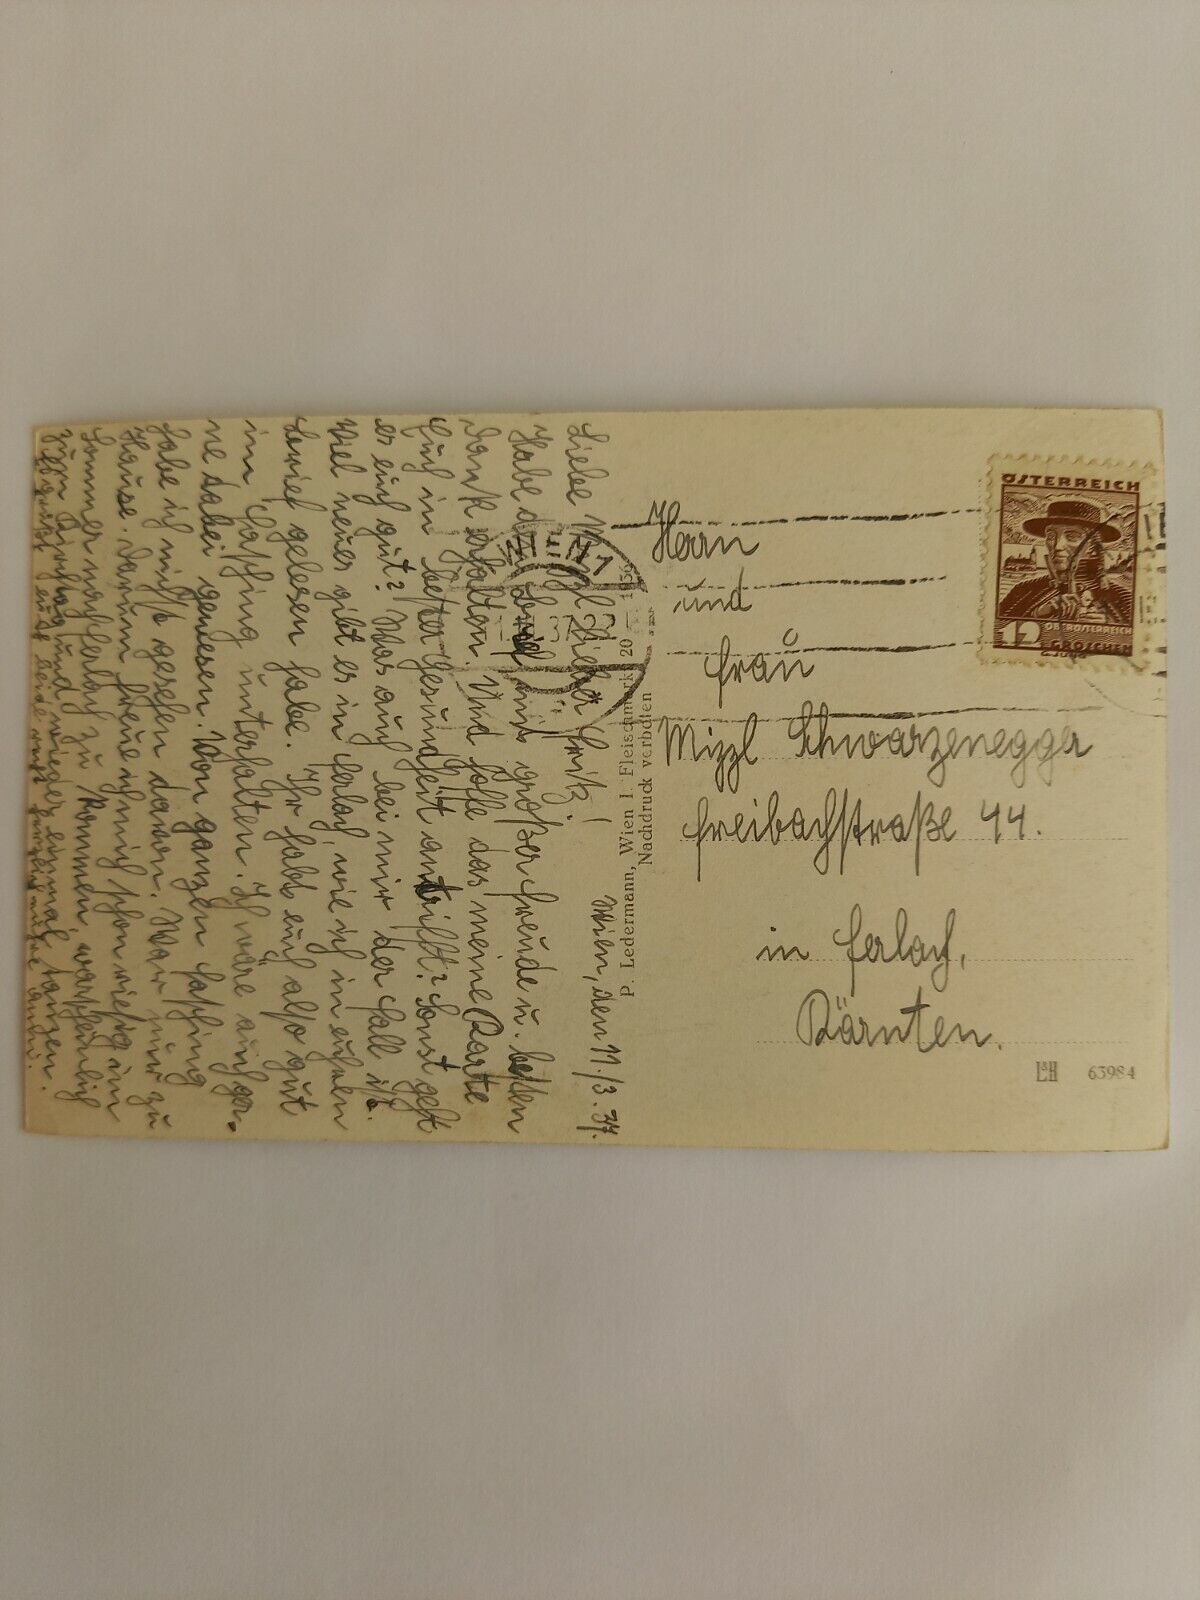 Wien, den 11./3. 37.
Liebe Mizzl, lieber Fritz!
Habe den Brief mit großer Freude u. besten
Dank erhalten. Und solle das meine Karte
Euch in bester Gesundheit antrifft? Sonst geht
es euch gut? Was auch bei mir der Fall ist.
Viel neues gibt es in Ferlach, wie ich in euren
Brief gelesen habe. Ihr habt euch also gut
im Fasching unterhalten. Ich wäre auch ger-
ne dabei gewesen. Von ganzen Fasching
habe ich nichts gesehen davon. War nur zu
Hause. Darum freue ich mich schon riesig im
Sommer nach Ferlach zu kommen, warscheinlich
zum Kirchtag und wieder einmal tanzen.
P. Ledermann, Wien I. Fleischmarkt 20 — 1936
Nachdruck verboten
WIEN 1
37
ÖSTERREICH
OBERÖSTERREICH
12
GROSCHEN
Herrn
und
Frau
Mizzl Schwarzenegger
Freibachstraße 44.
in Ferlach,
Kärnten.
63984